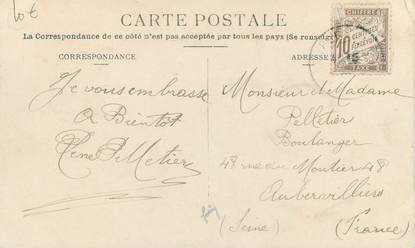 10€
CARTE POSTALE
La Correspondance de ce côté n'est pas acceptée par tous les pays (Se renseigner
CORRESPONDANCE
ADRESSE
CHIFFRE
10
CENTIMES
À PERCEVOIR
TAXE
Je vous embrasse
A Bientôt
René Pelletier
Monsieur et Madame
Pelletier
Boulanger
48 rue du Moutier 48
Aubervilliers
(Seine) (France)